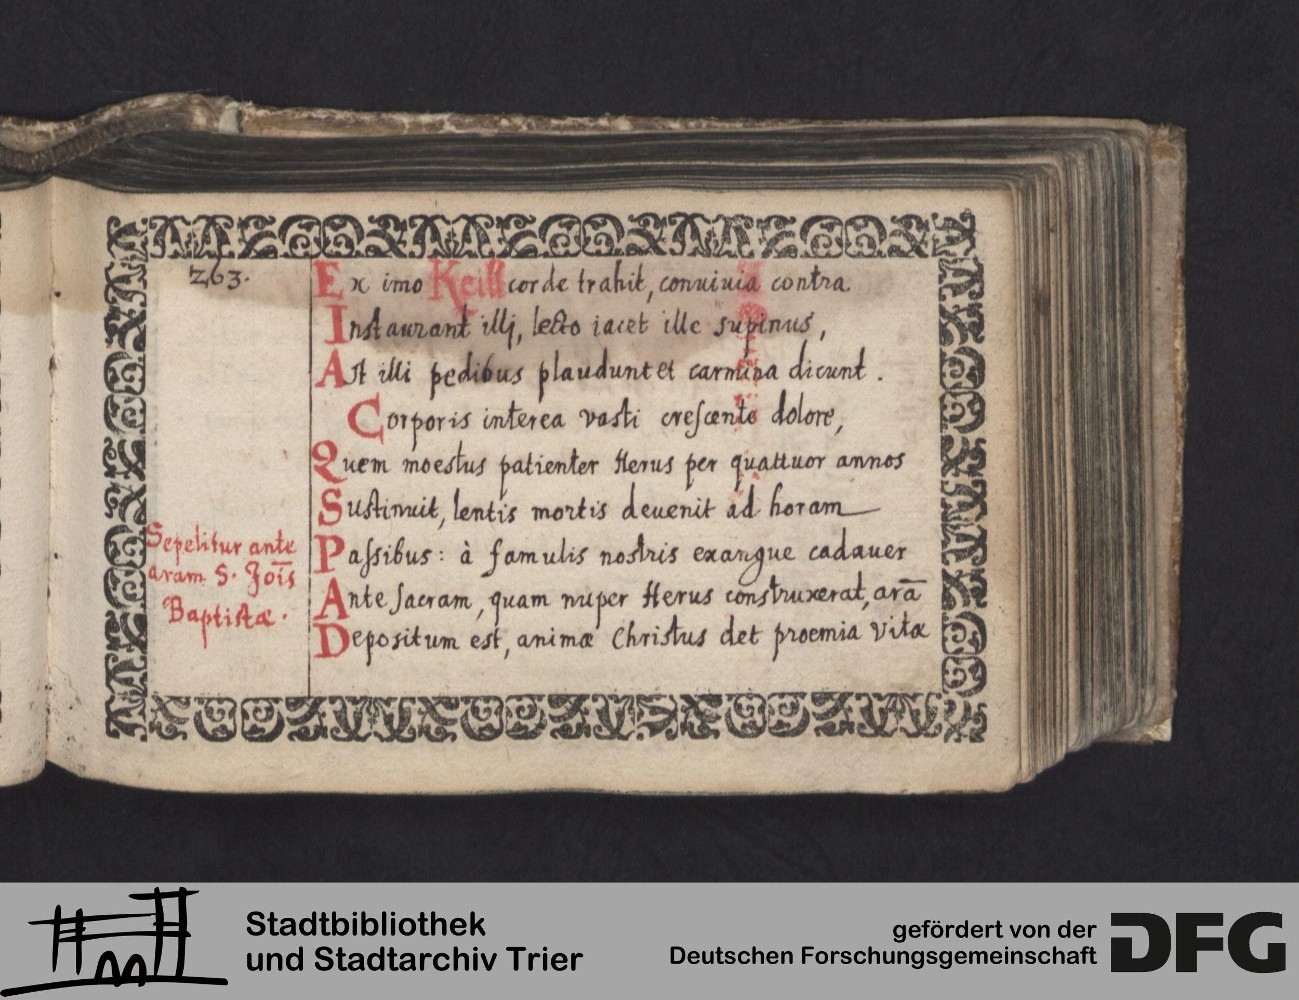 263.
Ex imo Keill corde trahit, conuiuia contra
Instaurant illj, lecto iacet ille supinus,
Ast illi pedibus plaudunt et carmina dicunt.
Corporis interea vasti crescente dolore,
Quem moestus patienter Herus per quattuor annos
Sustinuit, lentis mortis deuenit ad horam
Passibus: à famulis nostris exangue cadauer
Ante sacram, quam nuper Herus construxerat, arā
Depositum est, animæ Christus det proemia vitæ
Sepelitur ante
aram S. Joīs
Baptistæ.
Stadtbibliothek
und Stadtarchiv Trier
gefördert von der
Deutschen Forschungsgemeinschaft
DFG